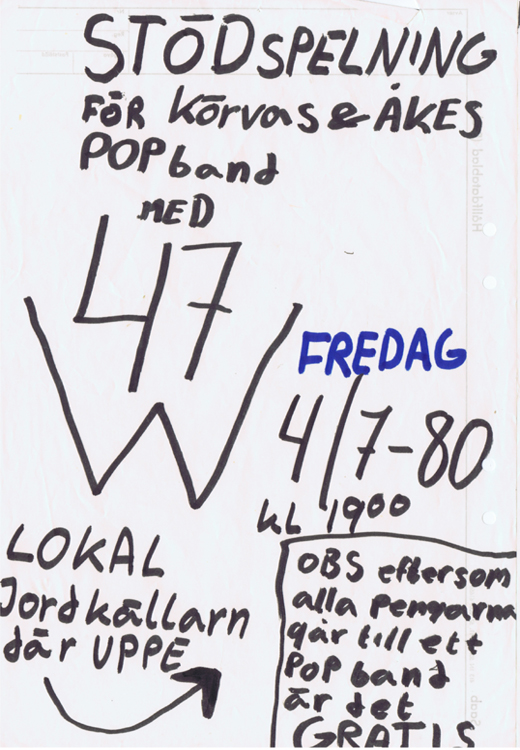 STÖDSPELNING
FÖR Körvas & ÅKES
POP band
MED
47
W
FREDAG
4/7-80
kl 1900
LOKAL
Jordkällarn
där UPPE
OBS eftersom
alla Pengarna
går till ett
POP band
är det
GRATIS